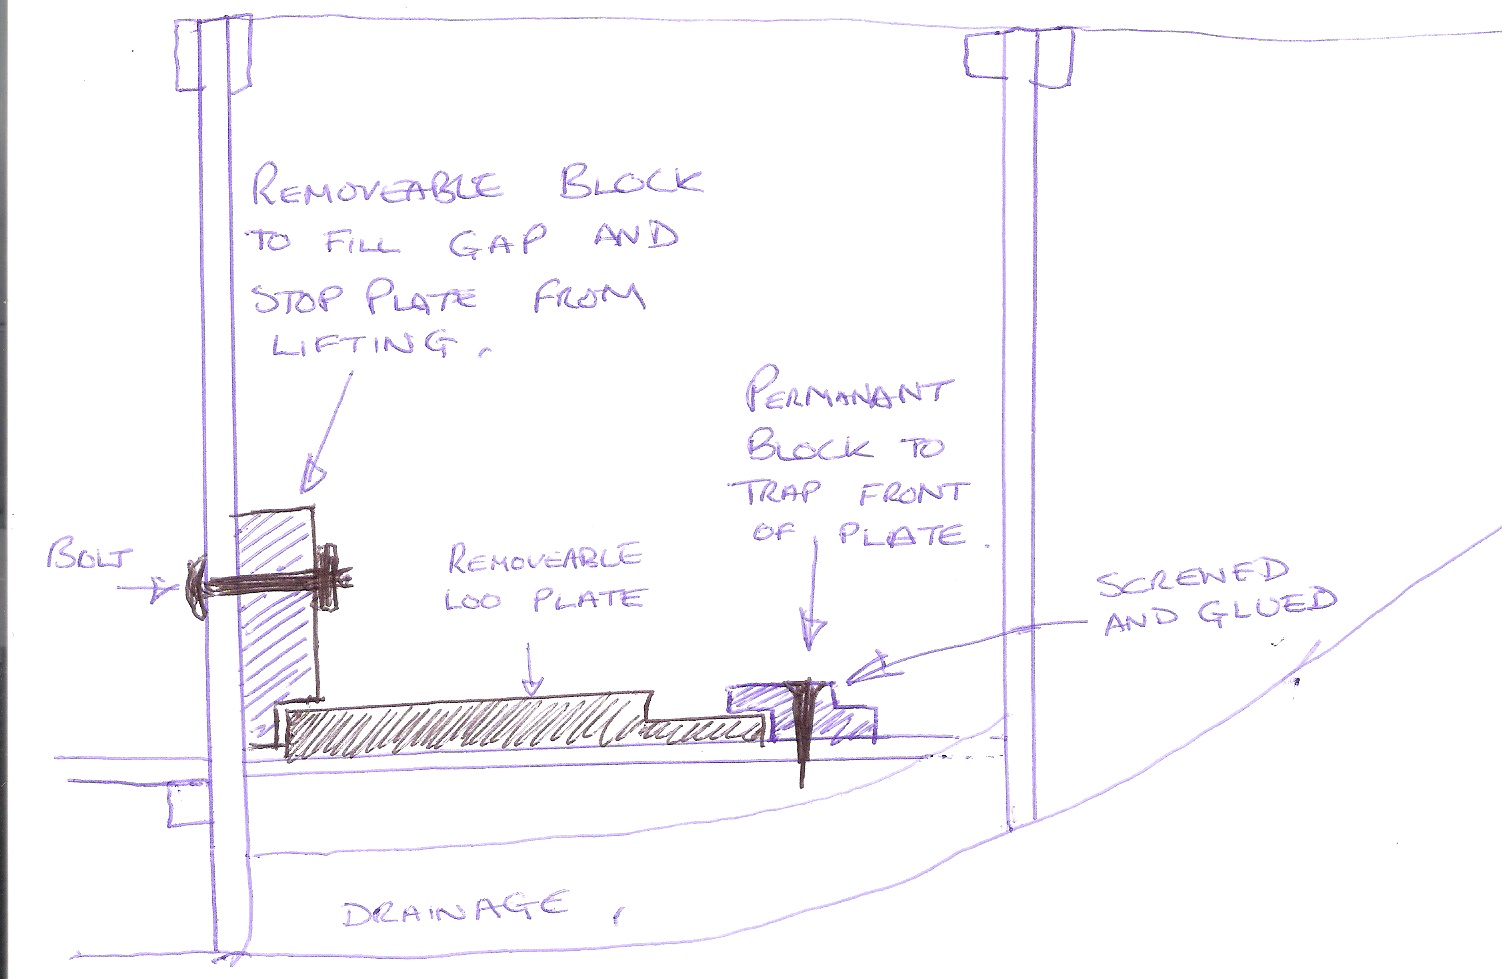 REMOVEABLE BLOCK
TO FILL GAP AND
STOP PLATE FROM
LIFTING.
PERMANANT
BLOCK TO
TRAP FRONT
OF PLATE.
BOLT
REMOVEABLE
LOO PLATE
SCREWED
AND GLUED
DRAINAGE